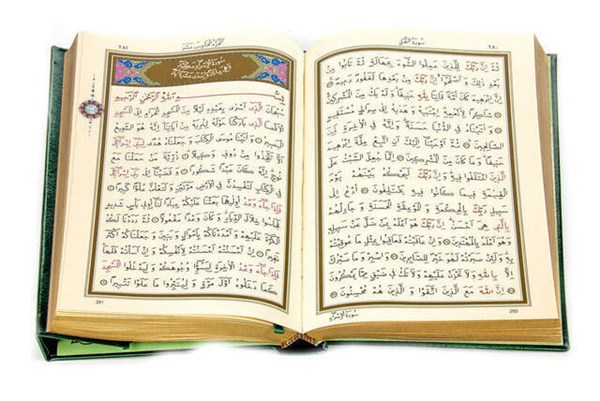 ٢٨٠
سُورَةُ النَّحْلِ
ثُمَّ اِنَّ رَبَّكَ لِلَّذ۪ينَ عَمِلُوا السُّٓوءَ بِجَهَالَةٍ ثُمَّ تَابُوا
مِنْ بَعْدِ ذٰلِكَ وَاَصْلَحُٓوا اِنَّ رَبَّكَ مِنْ بَعْدِهَا لَغَفُورٌ رَح۪يمٌ
اِنَّ اِبْرٰه۪يمَ كَانَ اُمَّةً قَانِتًا لِلّٰهِ حَن۪يفًا وَلَمْ يَكُ مِنَ الْمُشْرِك۪ينَ
شَاكِرًا لِاَنْعُمِهِ اِجْتَبٰيهُ وَهَدٰيهُ اِلٰى صِرَاطٍ مُسْتَق۪يمٍ
وَاٰتَيْنَاهُ فِي الدُّنْيَا حَسَنَةً وَاِنَّهُ فِي الْاٰخِرَةِ لَمِنَ
الصَّالِح۪ينَ ثُمَّ اَوْحَيْنَٓا اِلَيْكَ اَنِ اتَّبِعْ مِلَّةَ اِبْرٰه۪يمَ
حَن۪يفًا وَمَا كَانَ مِنَ الْمُشْرِك۪ينَ اِنَّمَا جُعِلَ السَّبْتُ عَلَى
الَّذ۪ينَ اخْتَلَفُوا ف۪يهِ وَاِنَّ رَبَّكَ لَيَحْكُمُ بَيْنَهُمْ يَوْمَ
الْقِيٰمَةِ ف۪يمَا كَانُوا ف۪يهِ يَخْتَلِفُونَ اُدْعُ اِلٰى
سَب۪يلِ رَبِّكَ بِالْحِكْمَةِ وَالْمَوْعِظَةِ الْحَسَنَةِ وَجَادِلْهُمْ
بِالَّت۪ي هِيَ اَحْسَنُ اِنَّ رَبَّكَ هُوَ اَعْلَمُ بِمَنْ ضَلَّ عَنْ سَب۪يلِه۪
وَهُوَ اَعْلَمُ بِالْمُهْتَد۪ينَ وَاِنْ عَاقَبْتُمْ فَعَاقِبُوا بِمِثْلِ مَا عُوقِبْتُمْ
بِه۪ وَلَئِنْ صَبَرْتُمْ لَهُوَ خَيْرٌ لِلصَّابِر۪ينَ وَاصْبِرْ وَمَا صَبْرُكَ
اِلَّا بِاللّٰهِ وَلَا تَحْزَنْ عَلَيْهِمْ وَلَا تَكُ ف۪ي ضَيْقٍ مِمَّا يَمْكُرُونَ
اِنَّ اللّٰهَ مَعَ الَّذ۪ينَ اتَّقَوْا وَالَّذ۪ينَ هُمْ مُحْسِنُونَ
280
سُورَةُ الْاِسْرَاءِ
٢٨١
بِسْمِ اللّٰهِ الرَّحْمٰنِ الرَّح۪يمِ
سُبْحَانَ الَّذ۪ٓي اَسْرٰى بِعَبْدِه۪ لَيْلًا مِنَ الْمَسْجِدِ الْحَرَامِ اِلَى الْمَسْجِدِ
الْاَقْصَا الَّذ۪ي بَارَكْنَا حَوْلَهُ لِنُرِيَهُ مِنْ اٰيَاتِنَا اِنَّهُ هُوَ السَّم۪يعُ
الْبَص۪يرُ وَاٰتَيْنَا مُوسَى الْكِتَابَ وَجَعَلْنَاهُ هُدًى لِبَن۪ٓي اِسْرَٓاء۪يلَ
اَلَّا تَتَّخِذُوا مِنْ دُون۪ي وَك۪يلًا ذُرِّيَّةَ مَنْ حَمَلْنَا مَعَ
نُوحٍ اِنَّهُ كَانَ عَبْدًا شَكُورًا وَقَضَيْنَٓا اِلٰى بَن۪ٓي اِسْرَٓاء۪يلَ
فِي الْكِتَابِ لَتُفْسِدُنَّ فِي الْاَرْضِ مَرَّتَيْنِ وَلَتَعْلُنَّ عُلُوًّا كَب۪يرًا
فَاِذَا جَٓاءَ وَعْدُ اُو۫لٰيهُمَا بَعَثْنَا عَلَيْكُمْ عِبَادًا لَنَٓا اُو۬ل۪ي بَأْسٍ شَد۪يدٍ
فَجَاسُوا خِلَالَ الدِّيَارِ وَكَانَ وَعْدًا مَفْعُولًا ثُمَّ رَدَدْنَا لَكُمُ
الْكَرَّةَ عَلَيْهِمْ وَاَمْدَدْنَاكُمْ بِاَمْوَالٍ وَبَن۪ينَ وَجَعَلْنَاكُمْ اَكْثَرَ
نَف۪يرًا اِنْ اَحْسَنْتُمْ اَحْسَنْتُمْ لِاَنْفُسِكُمْ وَاِنْ اَسَأْتُمْ فَلَهَا
فَاِذَا جَٓاءَ وَعْدُ الْاٰخِرَةِ لِيَسُٓؤُ۫ا وُجُوهَكُمْ وَلِيَدْخُلُوا الْمَسْجِدَ
كَمَا دَخَلُوهُ اَوَّلَ مَرَّةٍ وَلِيُتَبِّرُوا مَا عَلَوْا تَتْب۪يرًا
281